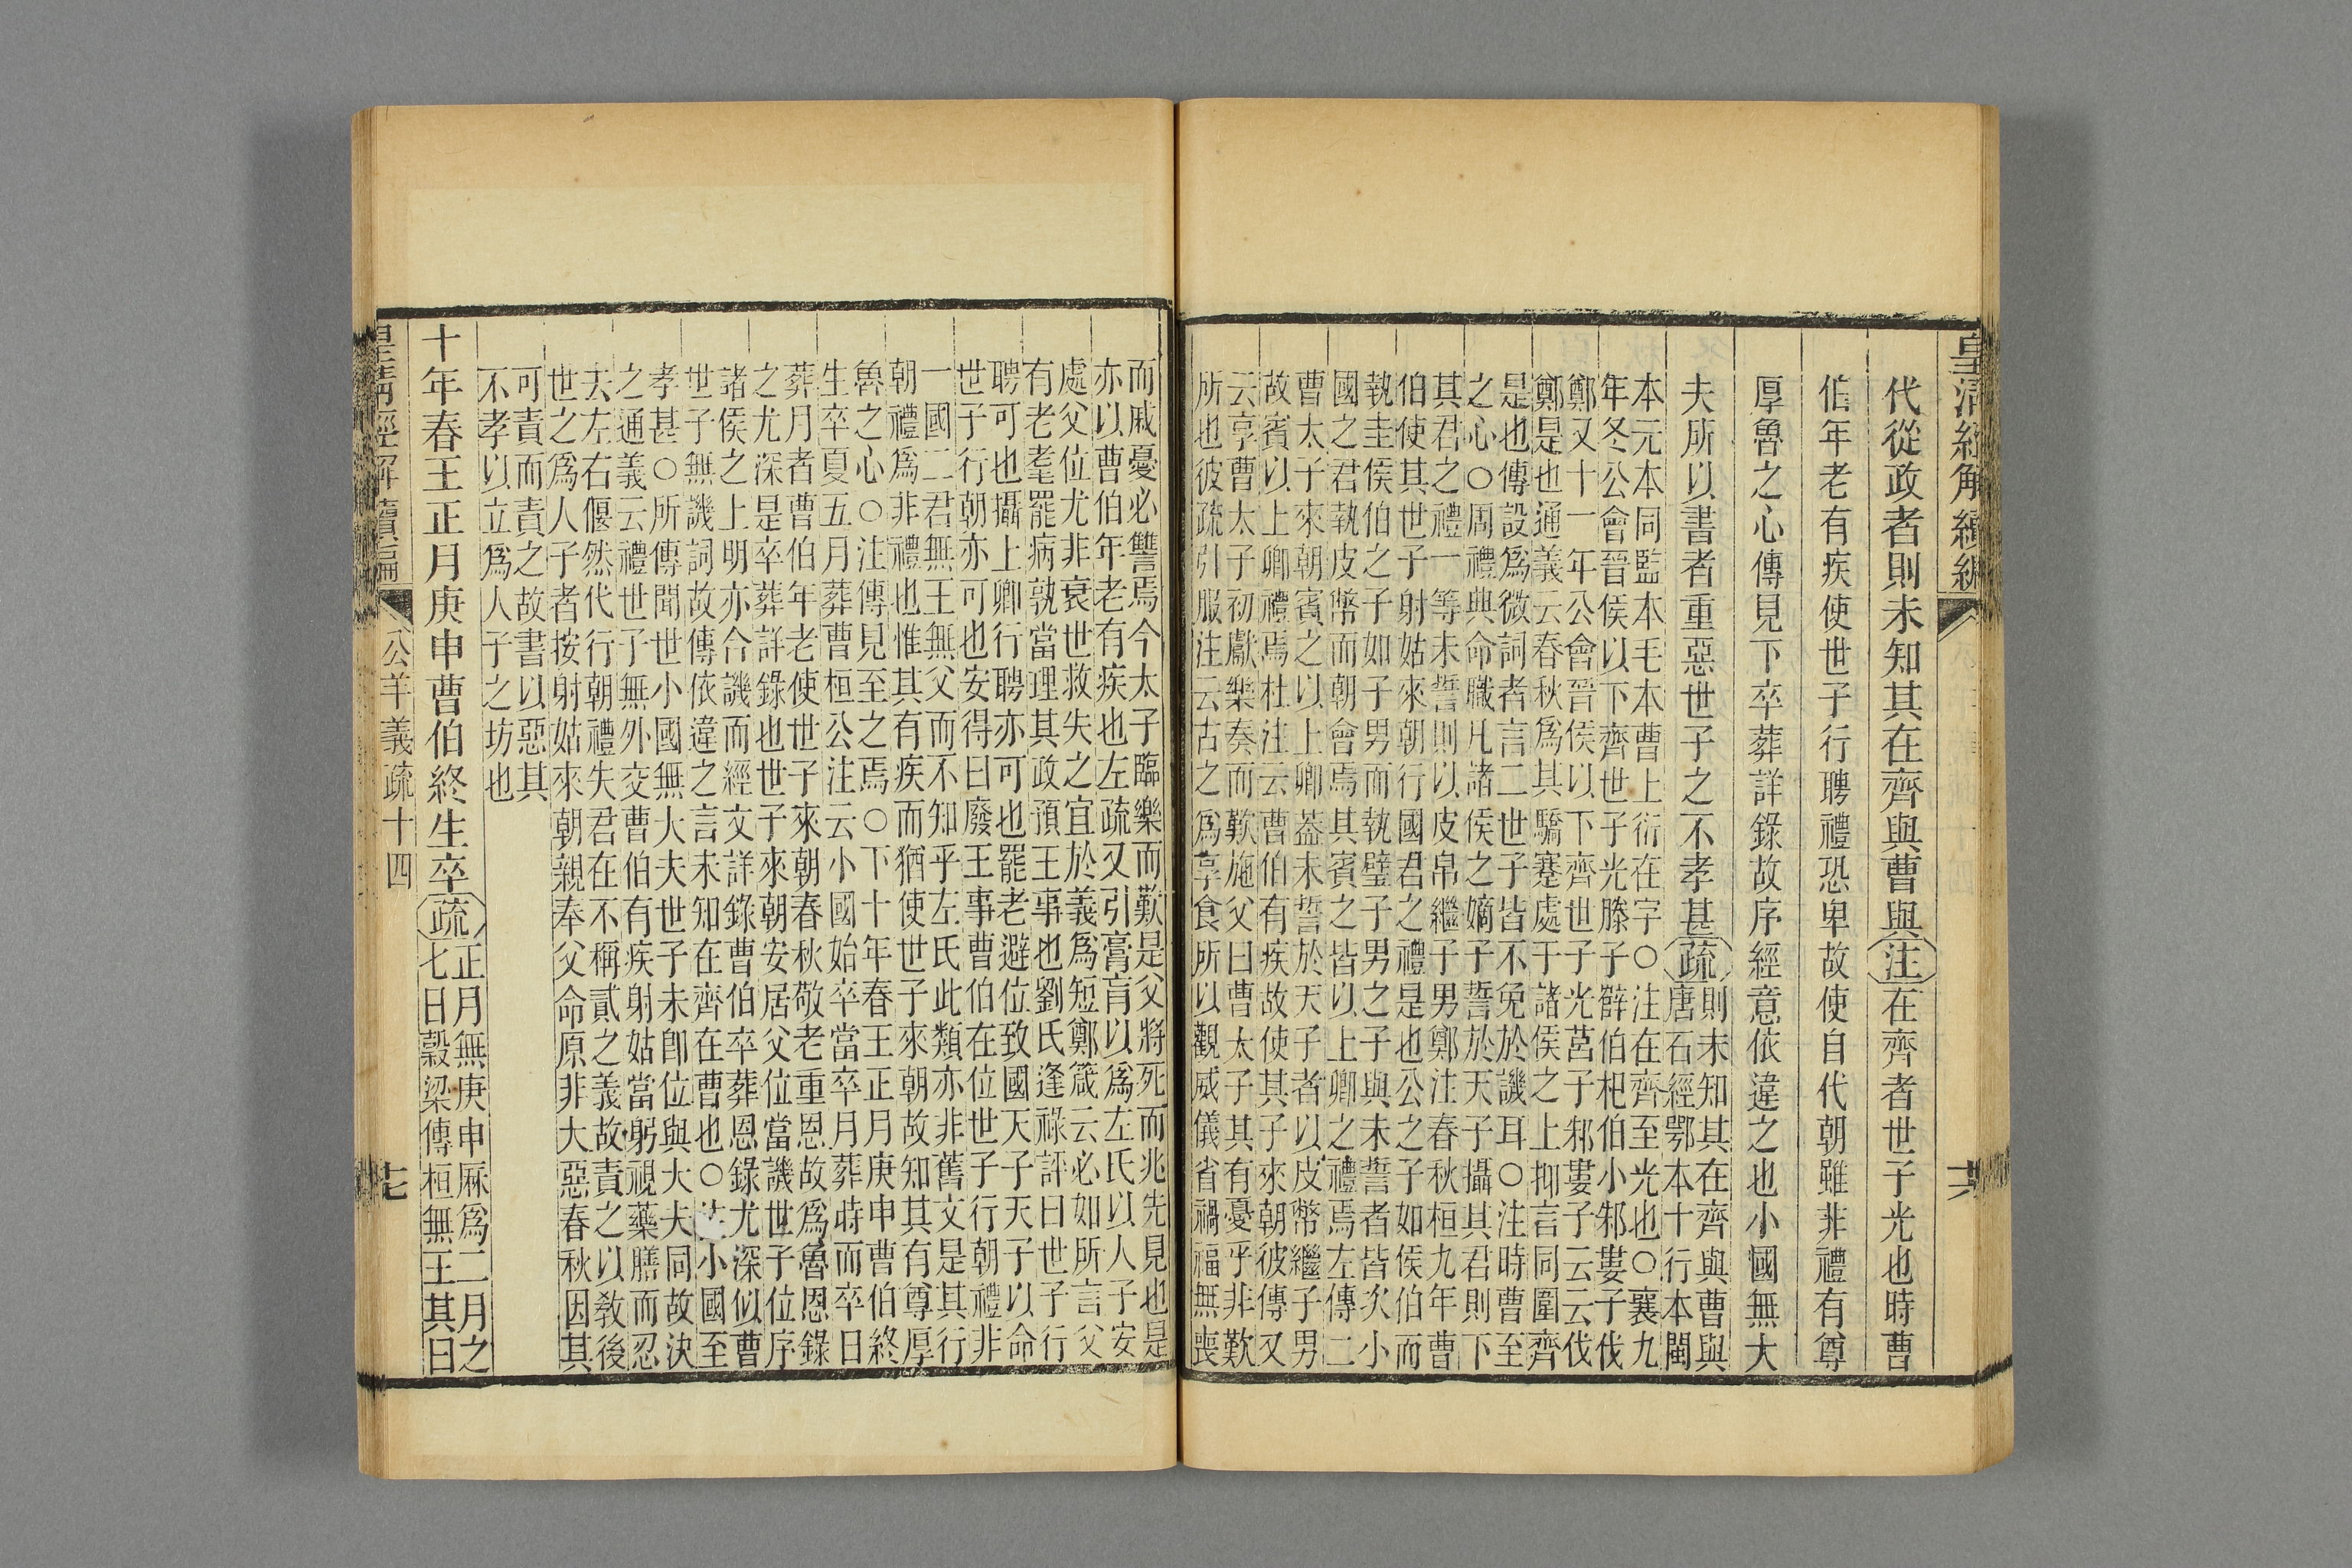 皇清經解續編
六
代從政者則未知其在齊與曹與注在齊者世子光也時曹
伯年老有疾使世子行聘禮恐卑故使自代朝雖非禮有尊
厚魯之心傳見下卒葬詳錄故序經意依違之也小國無大
夫所以書者重惡世子之不孝甚疏則未知其在齊與曹與
唐石經鄂本十行本閩
本元本同監本毛本曹上衍在字○注在齊至光也○襄九
年冬公會晉侯以下齊世子光滕子薛伯杞伯小邾婁子伐
鄭又十一年公會晉侯以下齊世子光莒子邾婁子云云伐
鄭是也通義云春秋爲其驕蹇處于諸侯之上抑言同圍齊
是也傳設爲微詞者言二世子皆不免於譏耳○注時曹至
之心○周禮典命職凡諸侯之嫡子誓於天子攝其君則下
其君之禮一等未誓則以皮帛繼子男鄭注春秋桓九年曹
伯使其世子射姑來朝行國君之禮是也公之子如侯伯而
執圭侯伯之子如子男而執璧子男之子與未誓者皆次小
國之君執皮幣而朝會焉其賓之皆以上卿之禮焉左傳二
曹太子來朝賓之以上卿葢未誓於天子者以皮幣繼子男
故賓以上卿禮焉杜注云曹伯有疾故使其子來朝彼傳又
云享曹太子初獻樂奏而歎施父曰曹太子其有憂乎非歎
所也彼疏引服注云古之爲享食所以觀威儀省禍福無喪
而戚憂必讐焉今太子臨樂而歎是父將死而兆先見也是
亦以曹伯年老有疾也左疏又引膏肓以爲左氏以人子安
處父位尤非衰世救失之宜於義爲短鄭箴云必如所言父
有老耄罷病孰當理其政預王事也劉氏逢祿評曰世子行
聘可也攝上卿行聘亦可也罷老避位致國天子天子以命
世子行朝亦可也安得曰廢王事曹伯在位世子行朝禮非
一國二君無王無父而不知乎左氏此類亦非舊文是其行
朝禮爲非禮也惟其有疾而猶使世子來朝故知其有尊厚
魯之心○注傳見至之焉○下十年春王正月庚申曹伯終
生卒夏五月葬曹桓公注云小國始卒當卒月葬時而卒日
葬月者曹伯年老使世子來朝春秋敬老重恩故爲魯恩錄
之尤深是卒葬詳錄也世子來朝安居父位當譏世子位序
諸侯之上明亦合譏而經文詳錄曹伯卒葬恩錄尤深似曹
世子無譏詞故傳依違之言未知在齊在曹也○小國至
孝甚○所傳聞世小國無大夫世子未卽位與大夫同故決
之通義云禮世子無外交曹伯有疾射姑當躬視藥膳而忍
去左右偃然代行朝禮失君在不稱貳之義故責之以敎後
世之爲人子者按射姑來朝親奉父命原非大惡春秋因其
可責而責之故書以惡其
不孝以立爲人子之坊也
十年春王正月庚申曹伯終生卒疏正月無庚申厤爲二月之
七日穀梁傳桓無王其曰
皇清經解續編
公羊義疏十四